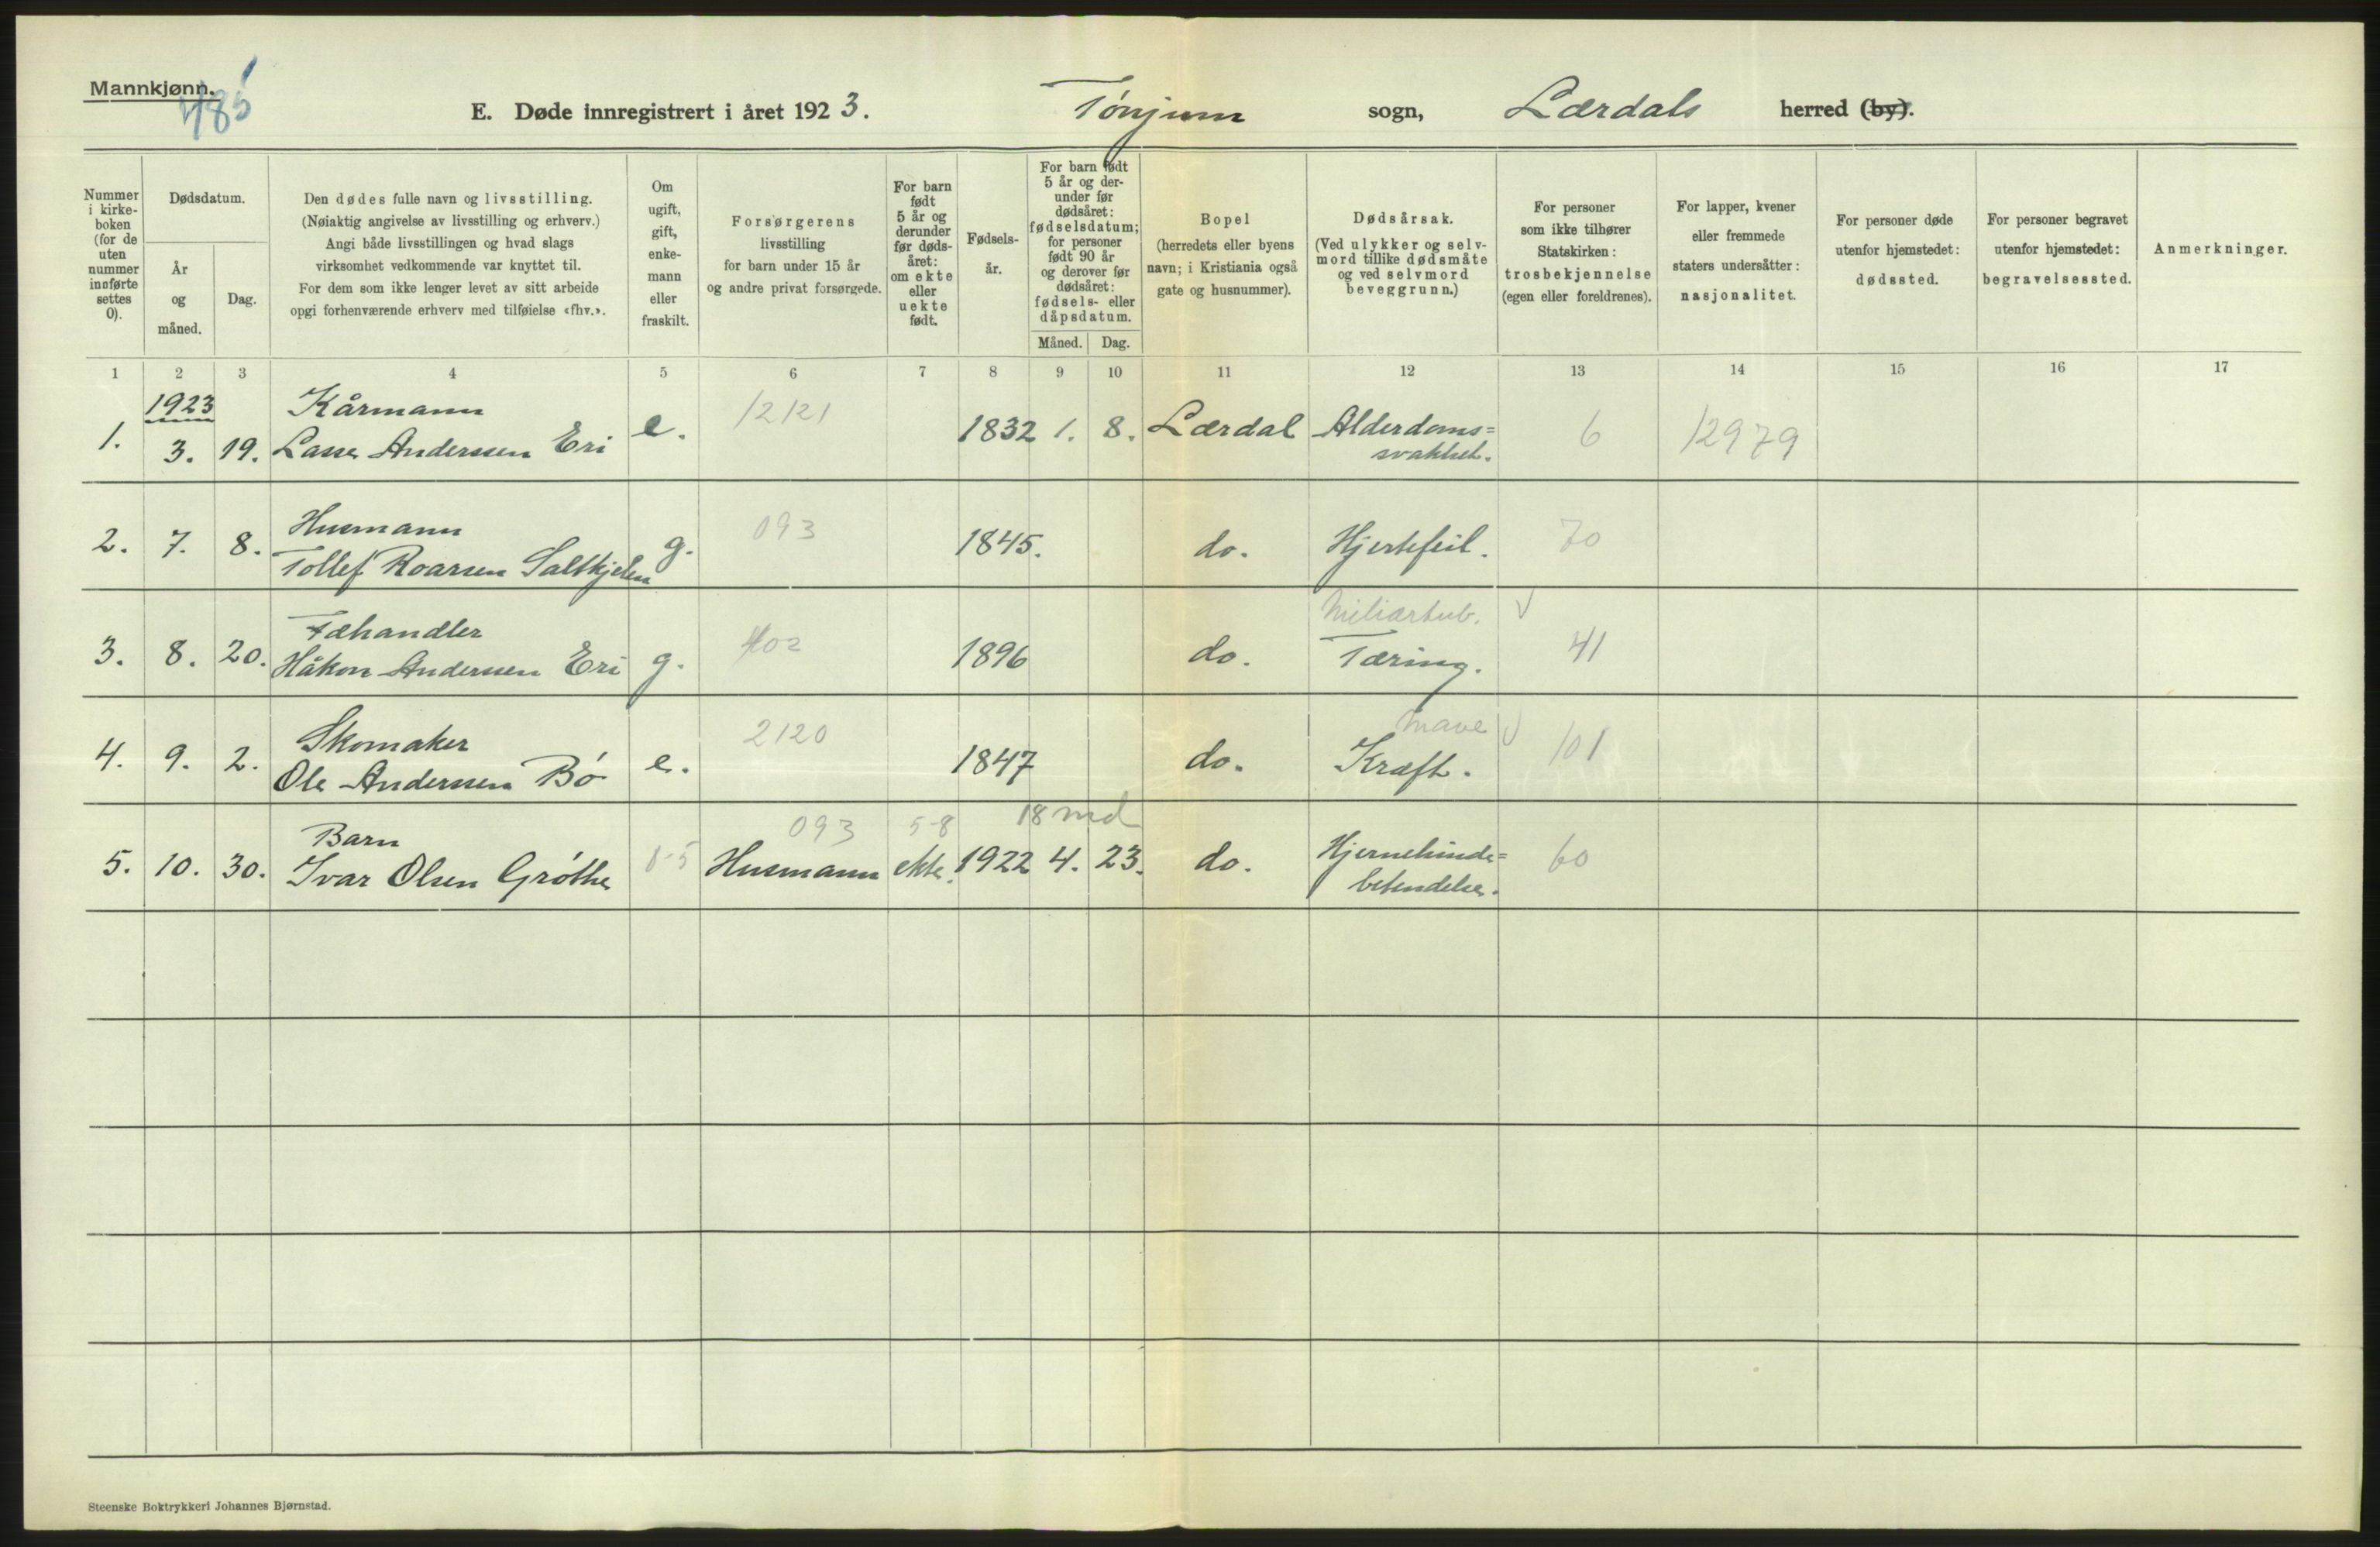 Mannkjønn.
485
E. Døde innregistrert i året 1923. Tønjum sogn, Lærdals herred (by).
Nummer i kirkeboken (for de uten nummer innførte settes 0).
Dødsdatum.
År og måned.
Dag.
Den dødes fulle navn og livsstilling.
(Nøiaktig angivelse av livsstilling og erhverv.)
Angi både livsstillingen og hvad slags
virksomhet vedkommende var knyttet til.
For dem som ikke lenger levet av sitt arbeide
opgi forhenværende erhverv med tilføielse «fhv.».
Om ugift, gift, enkemann eller fraskilt.
Forsørgerens
livsstilling
for barn under 15 år
og andre privat forsørgede.
For barn født 5 år og derunder før dødsåret: om ekte eller uekte født.
Fødselsår.
For barn født 5 år og derunder før dødsåret: fødselsdatum; for personer født 90 år og derover før dødsåret: fødsels- eller dåpsdatum.
Måned. Dag.
Bopel
(herredets eller byens
navn; i Kristiania også
gate og husnummer).
Dødsårsak.
(Ved ulykker og selvmord tillike dødsmåte
og ved selvmord
beveggrunn.)
For personer
som ikke tilhører
Statskirken:
trosbekjennelse
(egen eller foreldrenes).
For lapper, kvener
eller fremmede
staters undersåtter:
nasjonalitet.
For personer døde
utenfor hjemstedet:
dødssted.
For personer begravet
utenfor hjemstedet:
begravelsessted.
Anmerkninger.
1 2 3 4 5 6 7 8 9 10 11 12 13 14 15 16 17
1923 Kårmann 12121
1. 3. 19. Lasse Anderssen Eri e. 1832 1. 8. Lærdal Alderdoms=
svakhet. 6 12979
Husmann 093
2. 7. 8. Tollef Roarsen Saltkjelen g. 1845. do. Hjertefeil. 70
Fæhandler 402 Miliærtub. V
3. 8. 20. Håkon Anderssen Eri g. 1896 do. Tæring. 41
Skomaker 2120 Mave V
4. 9. 2. Ole Anderssen Bø e. 1847 do. Kræft. 101
Barn 093 5-8 18 md
5. 10. 30. Ivar Olsen Grøthe 0-5 Husmann ekte. 1922 4. 23. do. Hjernehinde=
betendelse. 60
Steenske Boktrykkeri Johannes Bjørnstad.